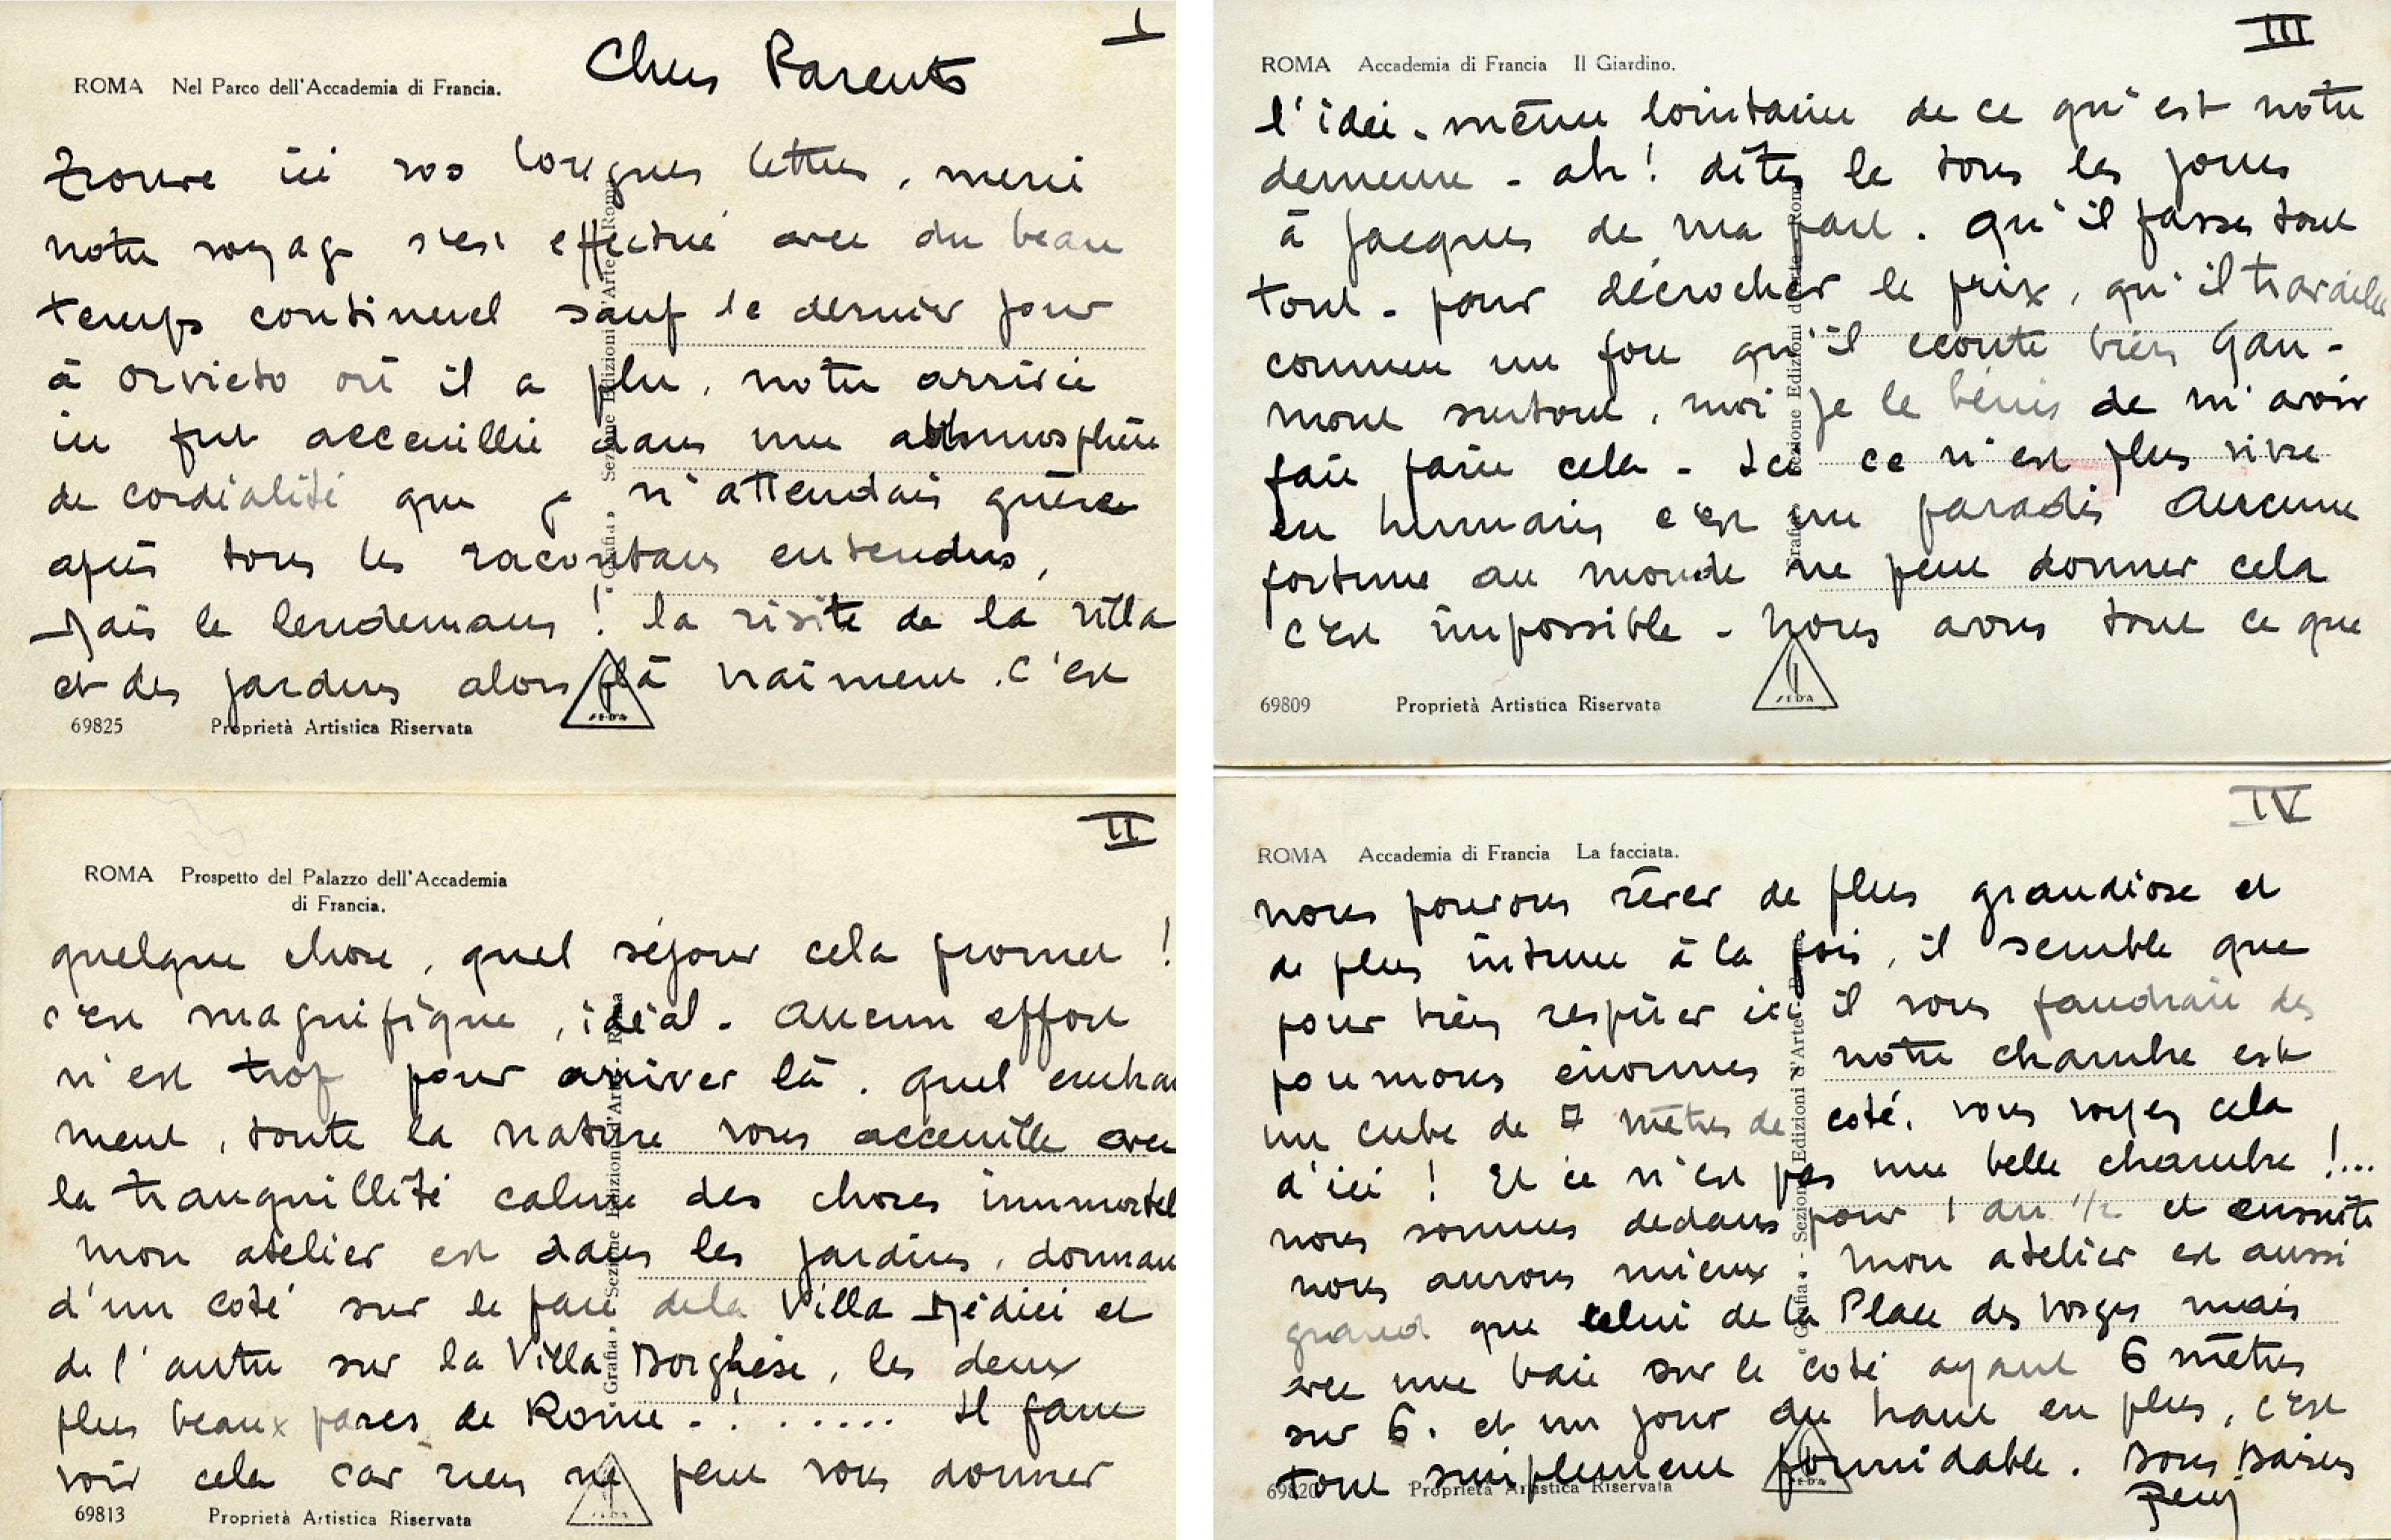 I
ROMA Nel Parco dell'Accademia di Francia.
Chers Parents
Trouvé ici vos longues lettres, merci
notre voyage s'est effectué avec du beau
temps continuel sauf le dernier jour
à Orvieto où il a plu, notre arrivée
ici fut acceuillie dans une athmosphère
de cordialité que je n'attendais guère
après tous les racontars entendus,
Mais le lendemain ! la visite de la villa
et des jardins alors là vraiment. c'est
Grafia - Sezione Edizioni d'Arte - Roma
SEDA
69825 Proprietà Artistica Riservata
II
ROMA Prospetto del Palazzo dell'Accademia
di Francia.
quelque chose, quel séjour cela promet !
c'est magnifique, idéal. Aucun effort
n'est trop pour arriver là. Quel enchan
ment, toute la nature vous acceuille avec
la tranquillité calme des choses immortel
mon atelier est dans les jardins, donnan
d'un coté sur le parc de la Villa Médici et
de l'autre sur la Villa Borghèse, les deux
plus beaux parcs de Rome - ! ...... Il faut
voir cela car rien ne peut vous donner
Grafia - Sezione Edizioni d'Arte - Roma
69813 Proprietà Artistica Riservata
III
ROMA Accademia di Francia Il Giardino.
l'idée - même lointaine de ce qu'est notre
demeure - ah ! dîtes le tous les jours
à Jacques de ma part. Qu'il fasse tout
tout - pour décrocher le prix, qu'il travaille
comme un fou qu'il écoute bien Gau-
mont surtout, moi je le bénis de m'avoir
fait faire cela - Ici ce n'est plus vivre
en humains c'est un paradis Aucune
fortune au monde ne peut donner cela
c'est impossible - Nous avons tout ce que
Grafia - Sezione Edizioni d'Arte - Roma
SEDA
69809 Proprietà Artistica Riservata
IV
ROMA Accademia di Francia La facciata.
nous pouvons rêver de plus grandiose et
de plus intime à la fois, il semble que
pour bien respirer ici il vous faudrait des
poumons énormes, notre chambre est
un cube de 7 mètres de coté. vous voyez cela
d'ici ! Et ce n'est pas une belle chambre !...
nous sommes dedans pour 1 an 1/2 et ensuite
nous aurons mieux. Mon atelier est aussi
grand que celui de la Place des Vosges mais
avec une baie sur le coté ayant 6 mètres
sur 6. et un jour du haut en plus, c'est
tout simplement formidable. Bons Baisers
Grafia - Sezione Edizioni d'Arte
69820 Proprietà Artistica Riservata